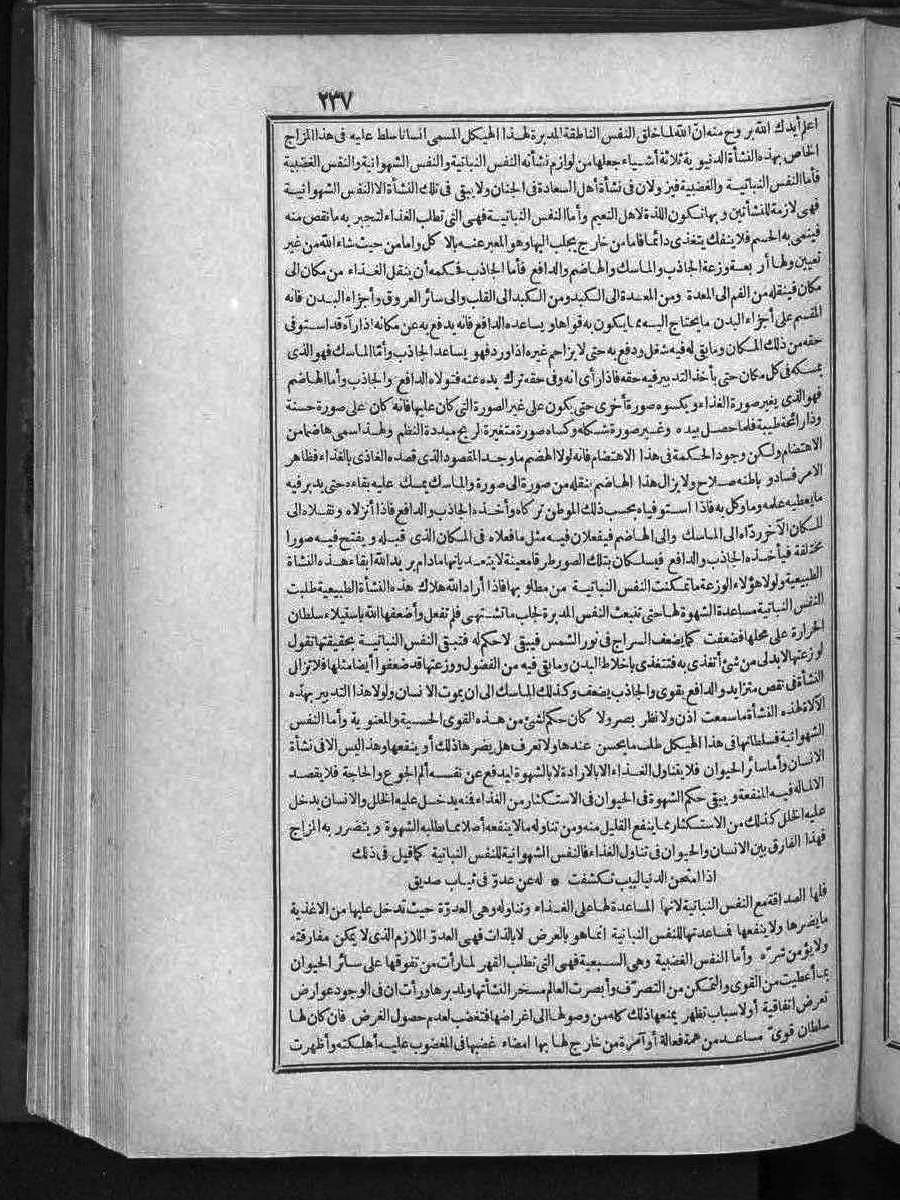 ٢٣٧
اعلم أيدك الله بروح منه ان الله لما خلق النفس الناطقة المدبرة لهذا الهيكل المسمى انسانا سلط عليه فى هذا المزاج
الخاص بهذه النشأة الدنيوية ثلاثة أشياء جعلها من لوازم نشأته النفس النباتية والنفس الشهوانية والنفس الغضبية
فأما النفس النباتية والغضبية فيزولان فى نشأة أهل السعادة فى الجنان ولا يبقى فى تلك النشأة الا النفس الشهوانية
فهى لازمة للنشأتين وبها تكون اللذة لاهل النعيم وأما النفس النباتية فهى التى تطلب الغذاء لتجبر به ما نقص منه
فينمى به الجسم فلا ينفك يتغذى دائما فاما من خارج يجلب اليها وهو المعبر عنه بالا كل واما من حيث شاء الله من غير
تعيين ولها أر بعة وزعة الجاذب والماسك والهاضم والدافع فأما الجاذب فحكمه أن ينقل الغذاء من مكان الى
مكان فينقله من الفم الى المعدة ومن المعدة الى الكبد ومن الكبد الى القلب والى سائر العروق وأجزاء البدن فانه
المقسم على أجزاء البدن ما يحتاج اليه مما يكون به قواها ويساعده الدافع فانه يدفع به عن مكانه اذا رآه قد استوفى
حقه من ذلك المكان وما بقى له فيه شغل ودفع به حتى لا يزاحم غيره اذا ورد فهو يساعد الجاذب وأما الماسك فهو الذى
يمسكه فى كل مكان حتى يأخذ التدبير فيه حقه فاذا رأى انه وفى حقه ترك يده عنه فتولاه الدافع والجاذب وأما الهاضم
فهو الذى يغير صورة الغذاء ويكسوه صورة أخرى حتى يكون على غير الصورة التى كان عليها فانه كان على صورة حسنة
وذا رائحة طيبة فلما حصل بيده وغير صورة شكله وكساه صورة متغيرة الريح مبددة النظم ولهذا سمى هاضما من
الاهتضام ولكن وجود الحكمة فى هذا الاهتضام فانه لولا الهضم ما وجد المقصود الذى قصده الغاذى بالغذاء فظاهر
الامر فساد و باطنه صلاح ولا يزال هذا الهاضم ينقله من صورة الى صورة والماسك يمسك عليه بقاءه حتى يدبر فيه
ما يعطيه علمه وما وكل به فاذا استوفياه بحسب ذلك الموطن تركاه وأخذه الجاذب والدافع فاذا أنزلاه ونقلاه الى
المكان الآخر رداه الى الماسك والى الهاضم فيفعلان فيه مثل ما فعلاه فى المكان الذى قبله و يفتح فيه صورا
مختلفة فيأخذه الجاذب والدافع فيسلكان بتلك الصور طرقا معينة لا يتعديانها مادام يريد الله ابقاء هذه النشأة
الطبيعية ولولا هؤلاء الوزعة ما تمكنت النفس النباتية من مطلوبها فاذا أراد الله هلاك هذه النشأة الطبيعية طلبت
النفس النباتية مساعدة الشهوة لها حتى تنبعث النفس المدبرة لجلب ما تشتهى فلم تفعل وأضعفها الله باستيلاء سلطان
الحرارة على محلها فضعفت كما يضعف السراج فى نور الشمس فيبقى لا حكم له فتبقى النفس النباتية بحقيقتها تقول
لوزعتها لا بد لى من شئ أتغذى به فتتغذى باخلاط البدن وما بقى فيه من الفضول ووزعتها قد ضعفوا أيضا مثلها فلا تزال
النشأة فى نقص متزايد والدافع يقوى والجاذب يضعف وكذلك الماسك الى ان يموت الانسان ولولا هذا التدبير بهذه
الآلة لهذه النشأة ما سمعت اذن ولا نظر بصر ولا كان حكم لشئ من هذه القوى الحسية والمعنوية وأما النفس
الشهوانية فسلطانها فى هذا الهيكل طلب ما يحسن عندها ولا تعرف هل يضرها ذلك أو ينفعها وهذا ليس الا فى نشأة
الانسان وأما سائر الحيوان فلا يتناول الغذاء الا بالارادة لا بالشهوة ليدفع عن نفسه ألم الجوع والحاجة فلا يقصد
الا لما له فيه المنفعة ويبقى حكم الشهوة فى الحيوان فى الاستكثار من الغذاء فمنه يدخل عليه الخلل والانسان يدخل
عليه الخلل كذلك من الاستكثار مما ينفع القليل منه ومن تناوله ما لا ينفعه أصلا مما تطلبه الشهوة و يتضرر به المزاج
فهذا الفارق بين الانسان والحيوان فى تناول الغذاء فالنفس الشهوانية للنفس النباتية كما قيل فى ذلك
اذا امتحن الدنيا لبيب تكشفت * له عن عدو فى ثياب صديق
فلها الصداقة مع النفس النباتية لانها المساعدة لها على الغذاء وتناوله وهى العدوة حيث تدخل عليها من الاغذية
ما يضرها ولا ينفعها فمساعدتها للنفس النباتية انما هو بالعرض لا بالذات فهى العدو اللازم الذى لا يمكن مفارقته
ولا يؤمن شره وأما النفس الغضبية وهى السبعية فهى التى تطلب القهر لما رأت من تفوقها على سائر الحيوان
بما أعطيت من القوى والتمكن من التصرف وأبصرت العالم مسخرا لنشأتها ولمدبرها ورأت ان فى الوجود عوارض
تعرض اتفاقية أو لاسباب تظهر يمنعها ذلك كله من وصولها الى اغراضها فتغضب لعدم حصول الغرض فان كان لها
سلطان قوى مساعد من همة فعالة أو آمرة من خارج لها بها امضاء غضبها فى المغضوب عليه أهلكته وأظهرت